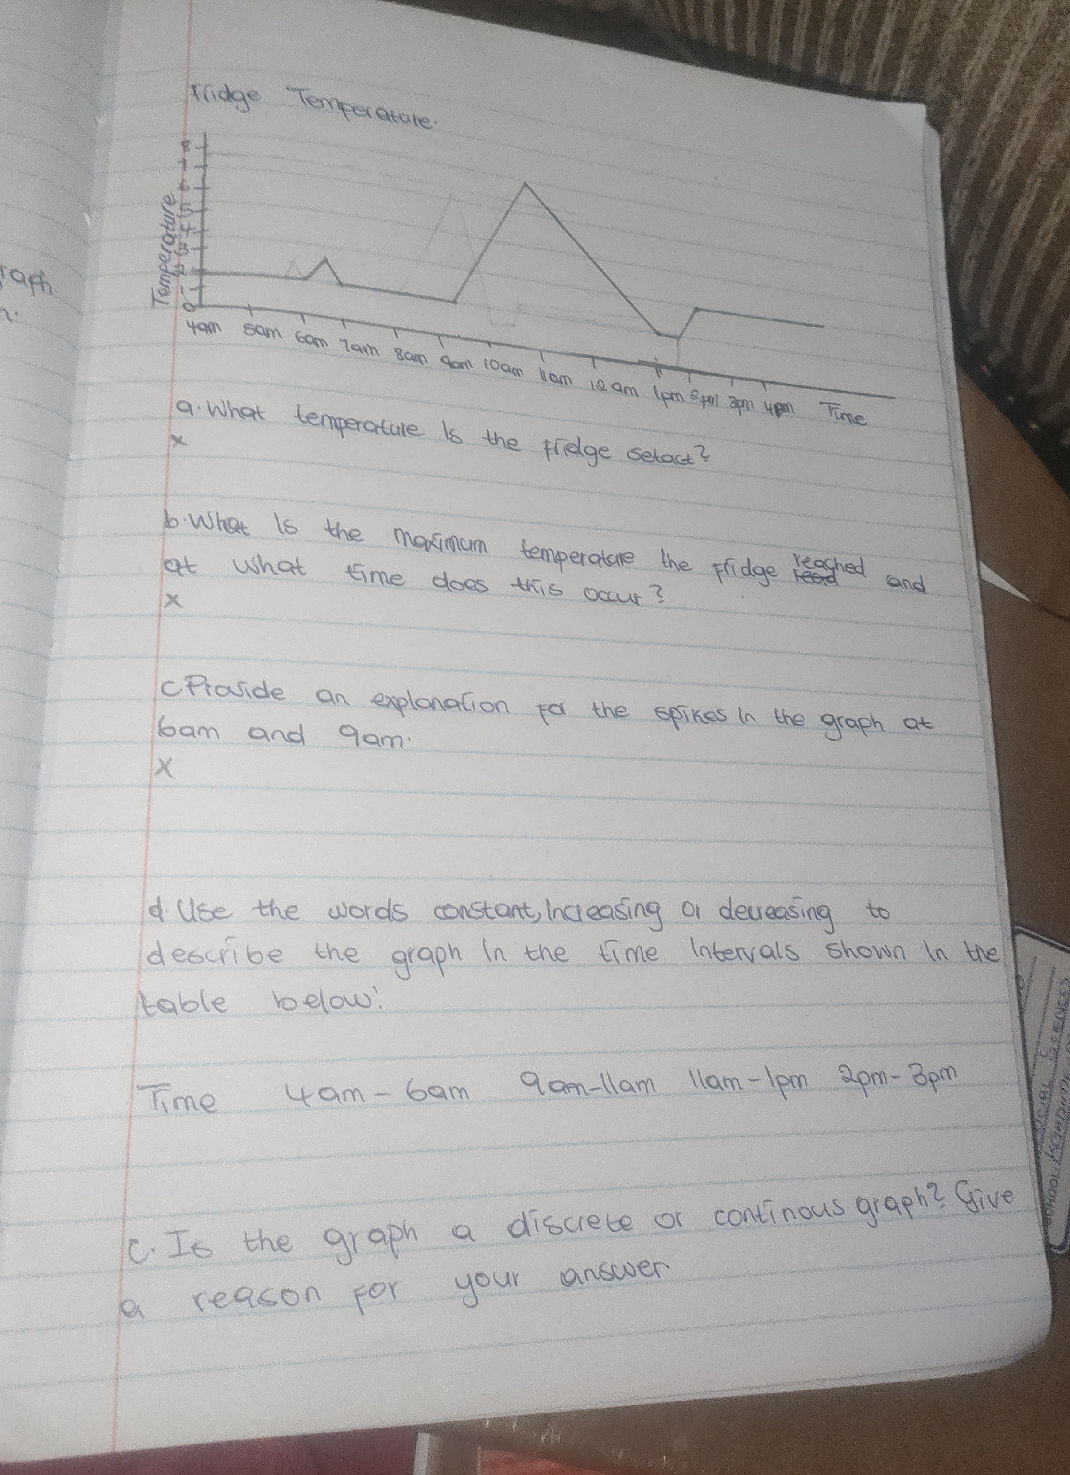 Fridge Temperature.
Temperature
8
7
6
5
4
3
2
1
0
4am 5am 6am 7am 8am 9am 10am 11am 12am 1pm 2pm 3pm 4pm Time
raph
a. What temperature Is the fridge setact?
x
b. What Is the maximum temperature the fridge reached and
at what time does this occur?
x
c Provide an explanation for the spikes In the graph at
6am and 9am.
x
d. Use the words constant, Increasing or decreasing to
describe the graph In the time Intervals shown In the
table below:
Time 4am - 6am 9am-11am 11am-1pm 2pm-3pm
c. Is the graph a discrete or continous graph? Give
a reason for your answer